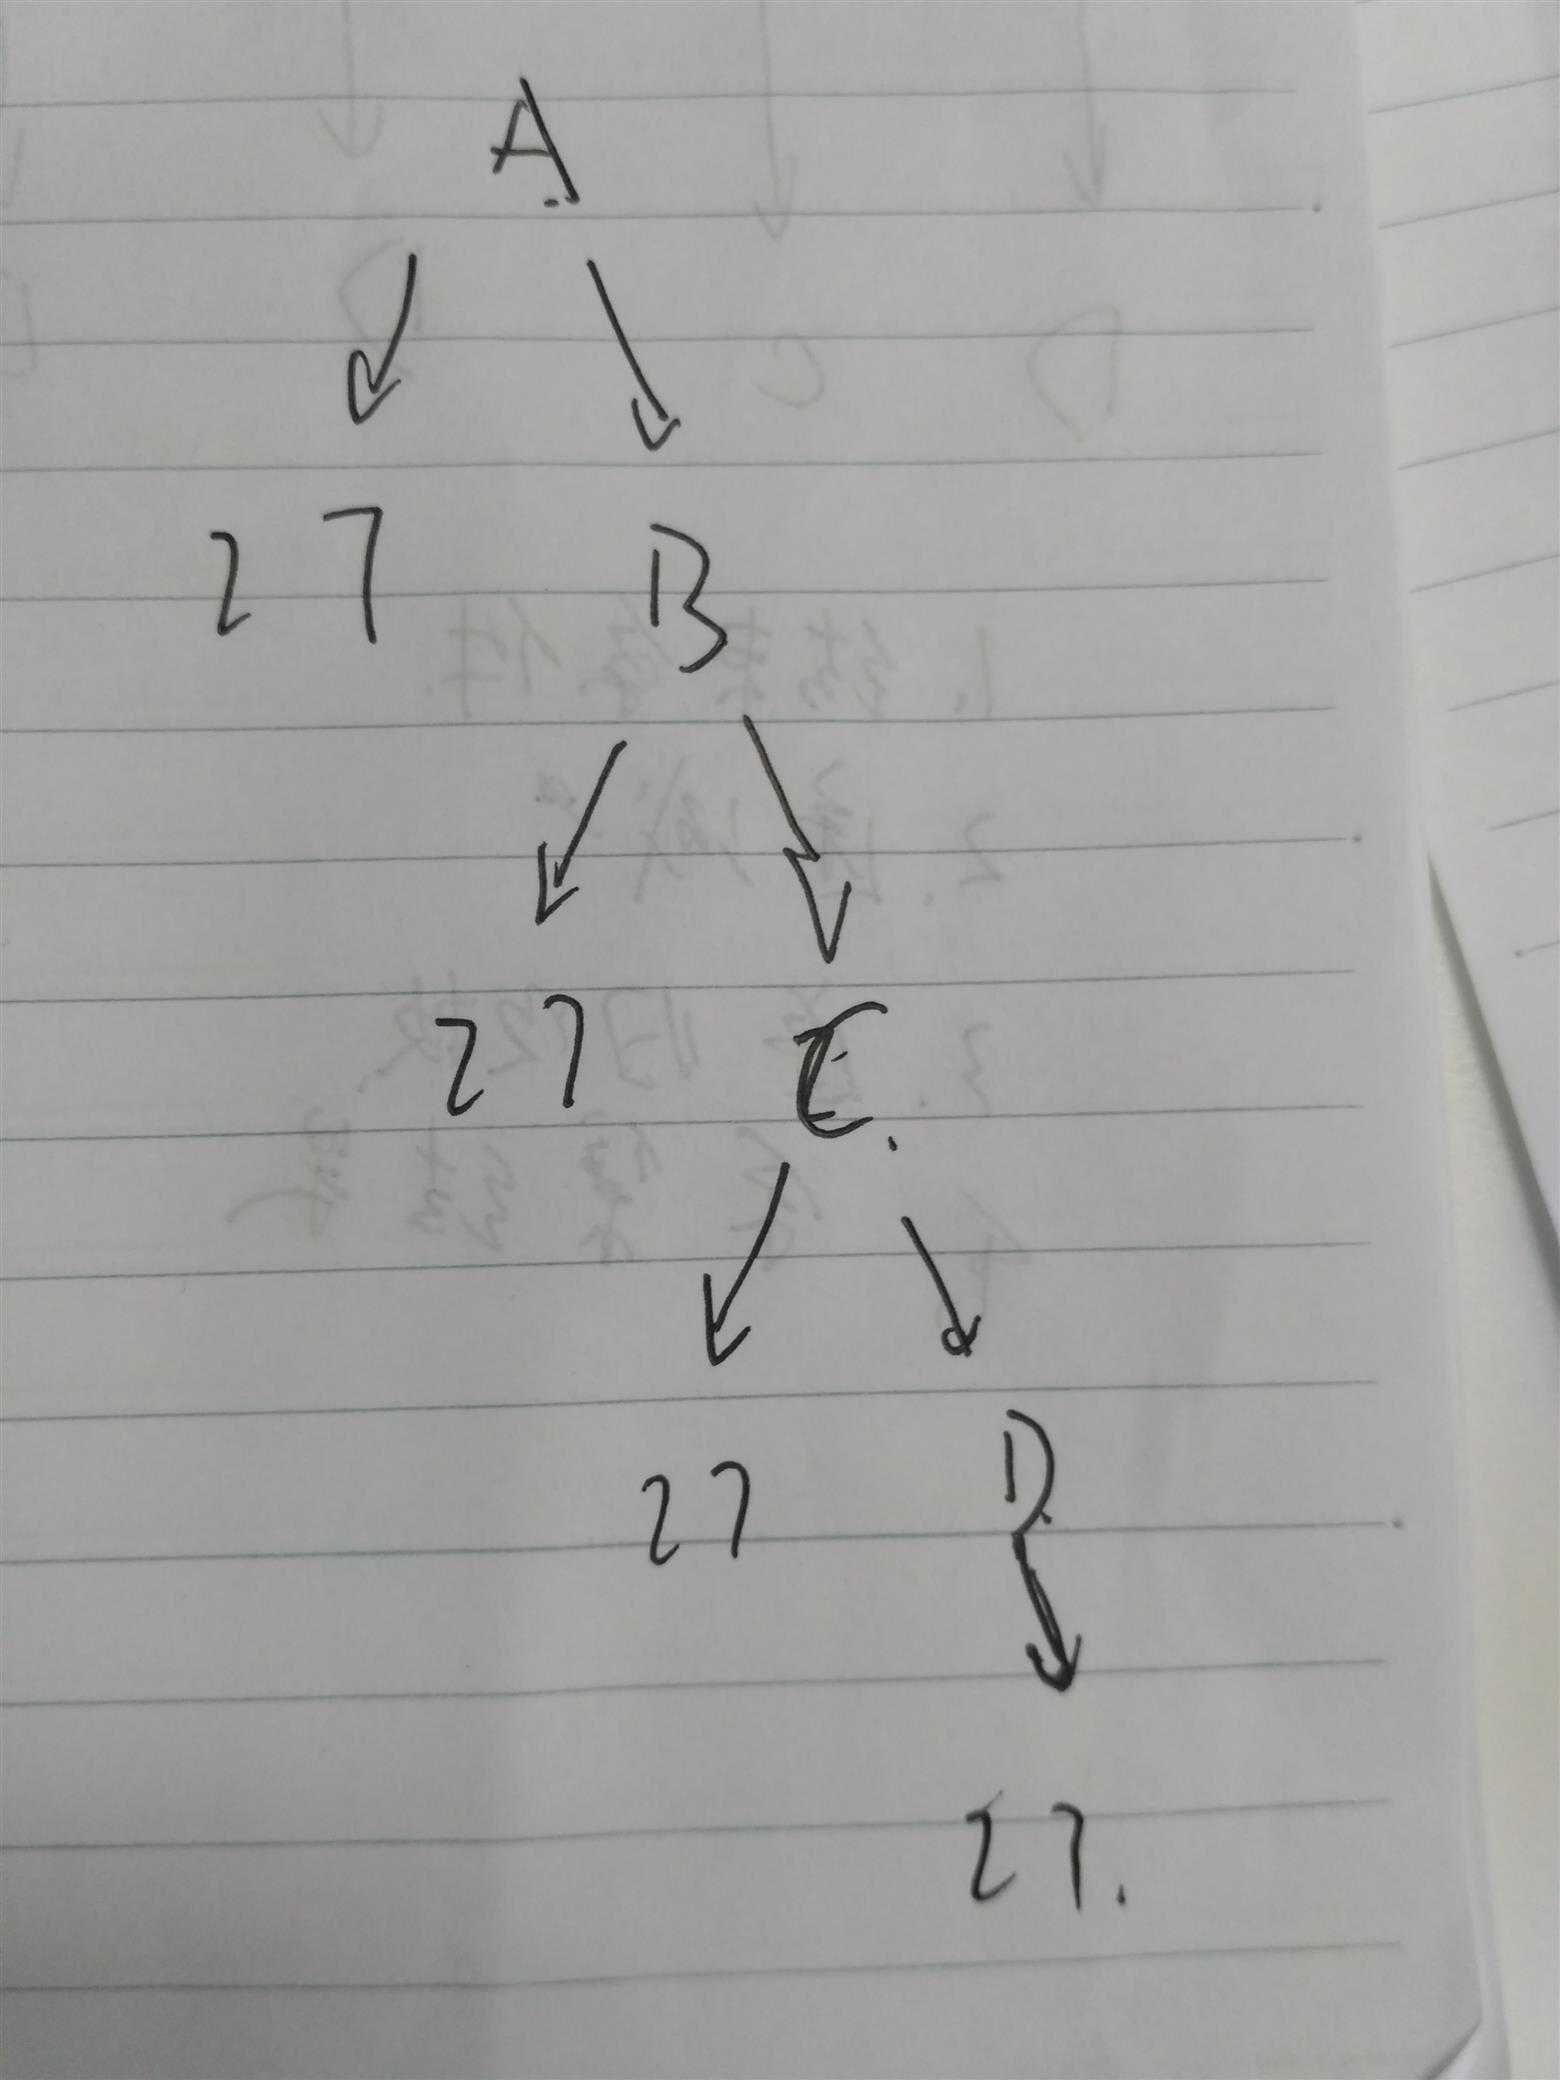 A
27 B
27 C.
27 D
27.